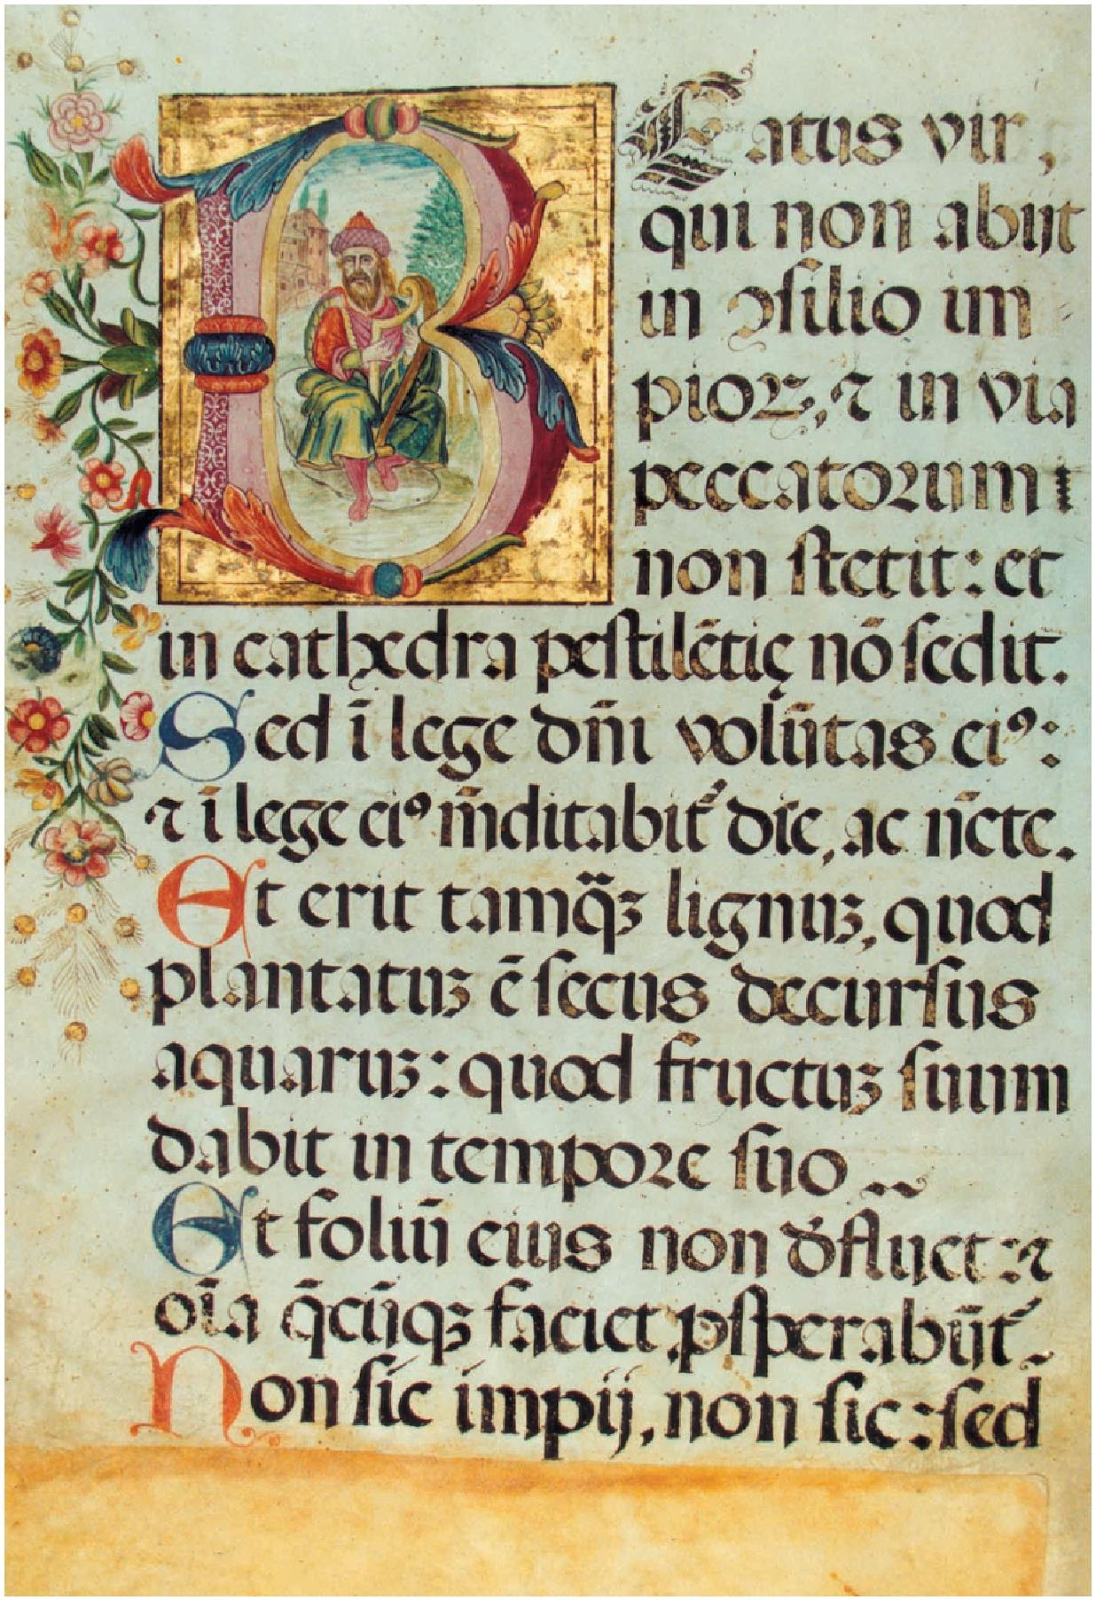 Eatus vir,
qui non abijt
in ꝯsilio im
pioꝝ, ⁊ in via
peccatorum
non stetit: et
in cathedra pestilētię nō sedit.
Sed ī lege dñi volūtas eiꝰ:
⁊ ī lege eiꝰ m̄ditabit᷑ die, ac nc̄te.
Et erit tamq̄ꝫ lignuꝫ, quod
plantatuꝫ ē secus decursus
aquaruꝫ: quod fructuꝫ suum
dabit in tempore suo
Et foliū eius non dēfluet: ⁊
oīa q̄cūqꝫ faciet, ꝓsperabūt᷑.
Non sic impij, non sic: sed